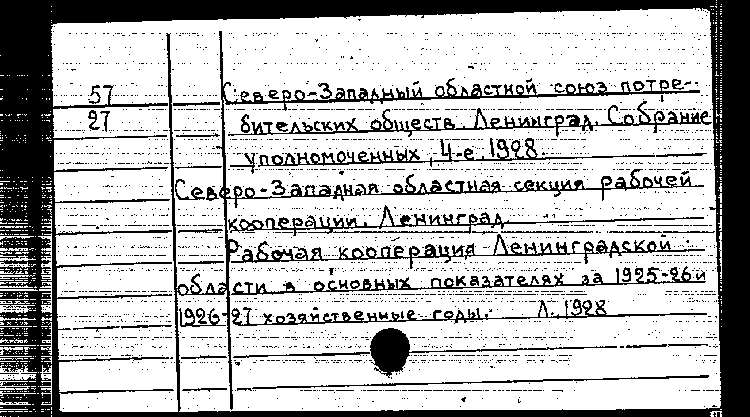 57 Северо-Западный областной союз потре-
27 бительских обществ. Ленинград. Собрание
уполномоченных, 4-е, 1928.
Северо-Западная областная секция рабочей
кооперации. Ленинград.
Рабочая кооперация Ленинградской
области в основных показателях за 1925-26 и
1926-27 хозяйственные годы. Л., 1928